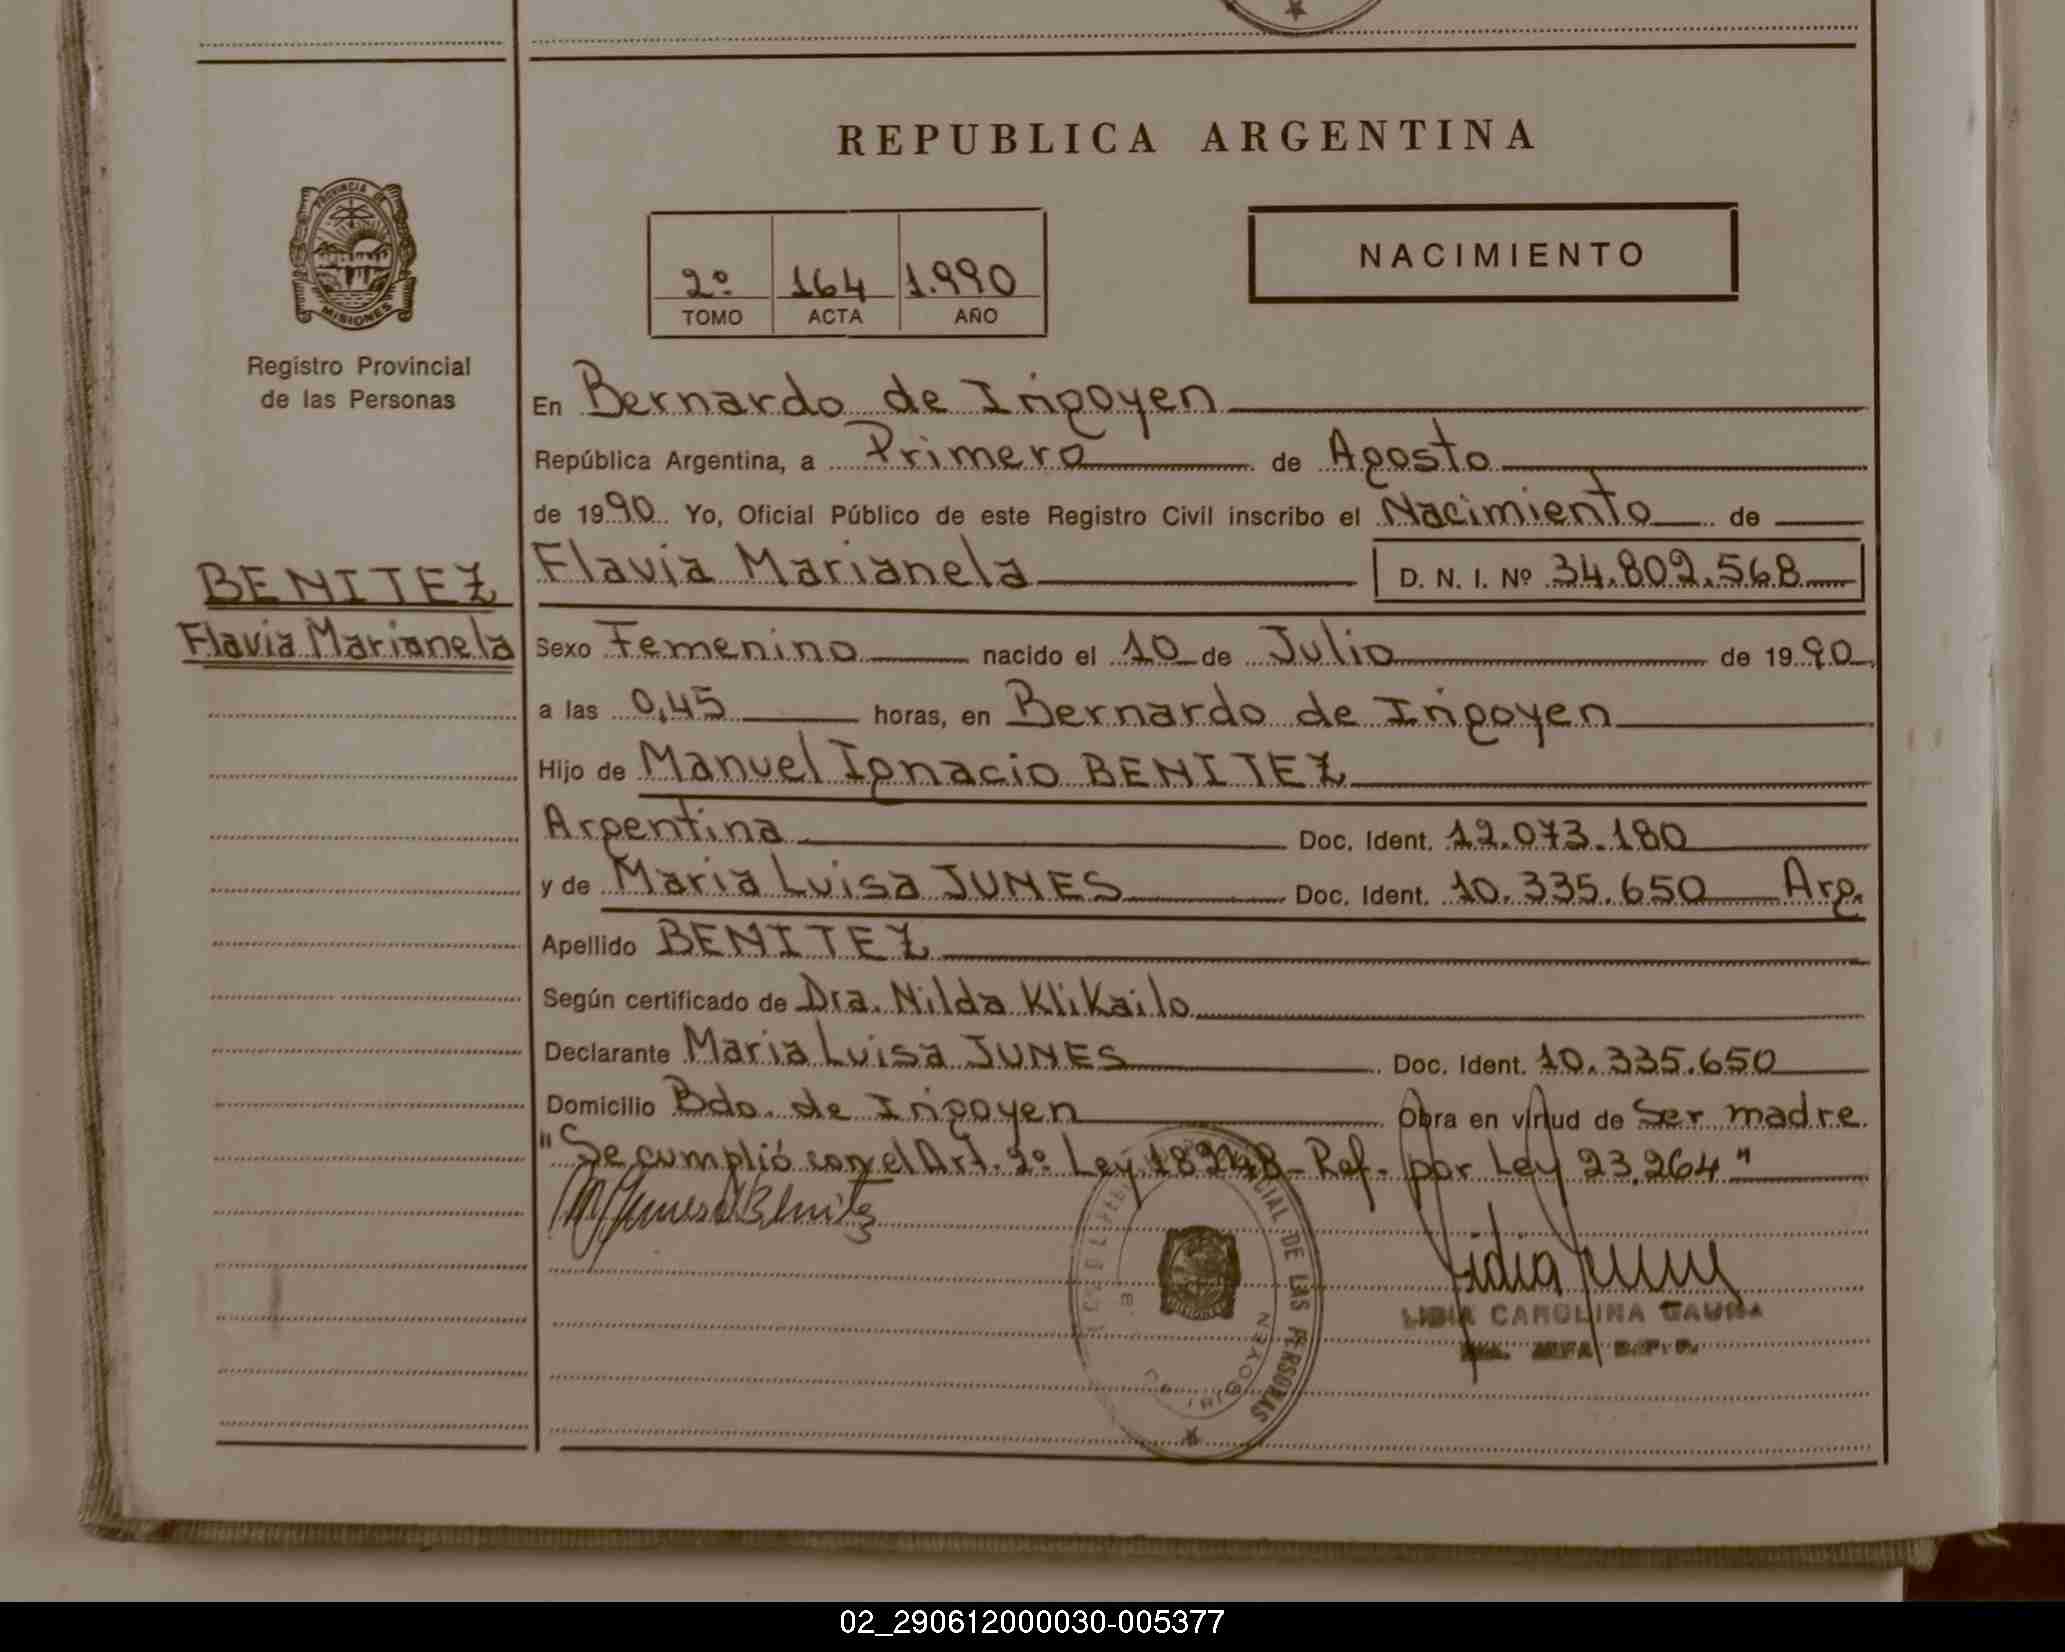 REPUBLICA ARGENTINA
PROVINCIA DE
MISIONES
Registro Provincial
de las Personas
2º 164 1.990
TOMO ACTA AÑO
NACIMIENTO
En Bernardo de Irigoyen
República Argentina, a Primero de Agosto
de 1990 Yo, Oficial Público de este Registro Civil inscribo el Nacimiento de
BENITEZ
Flavia Marianela
Flavia Marianela D. N. I. Nº 34.802.568
Sexo Femenino nacido el 10 de Julio de 1990
a las 0,45 horas, en Bernardo de Irigoyen
Hijo de Manuel Ignacio BENITEZ
Argentina Doc. Ident. 12.073.180
y de Maria Luisa JUNES Doc. Ident. 10.335.650 Arg.
Apellido BENITEZ
Según certificado de Dra. Nilda Klikailo
Declarante Maria Luisa JUNES Doc. Ident. 10.335.650
Domicilio Bdo. de Irigoyen Obra en virtud de Ser madre
"Se cumplió con el Art. 2º Ley 18248 - Ref. por Ley 23.264"
DE LAS PERSONAS
IRIGOYEN
Lidia
LIDIA CAROLINA GAUNA
02_290612000030-005377